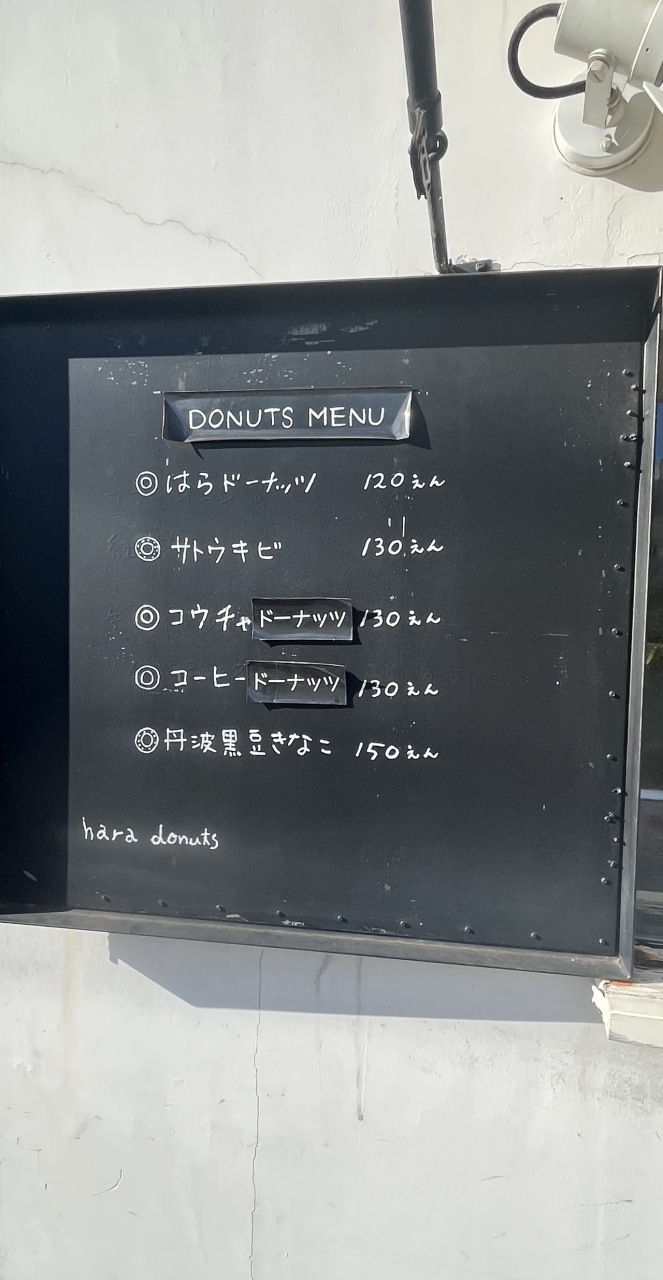 DONUTS MENU
◎はらドーナッツ 120えん
◎サトウキビ 130えん
◎コウチャドーナッツ 130えん
◎コーヒードーナッツ 130えん
◎丹波黒豆きなこ 150えん
hara donuts